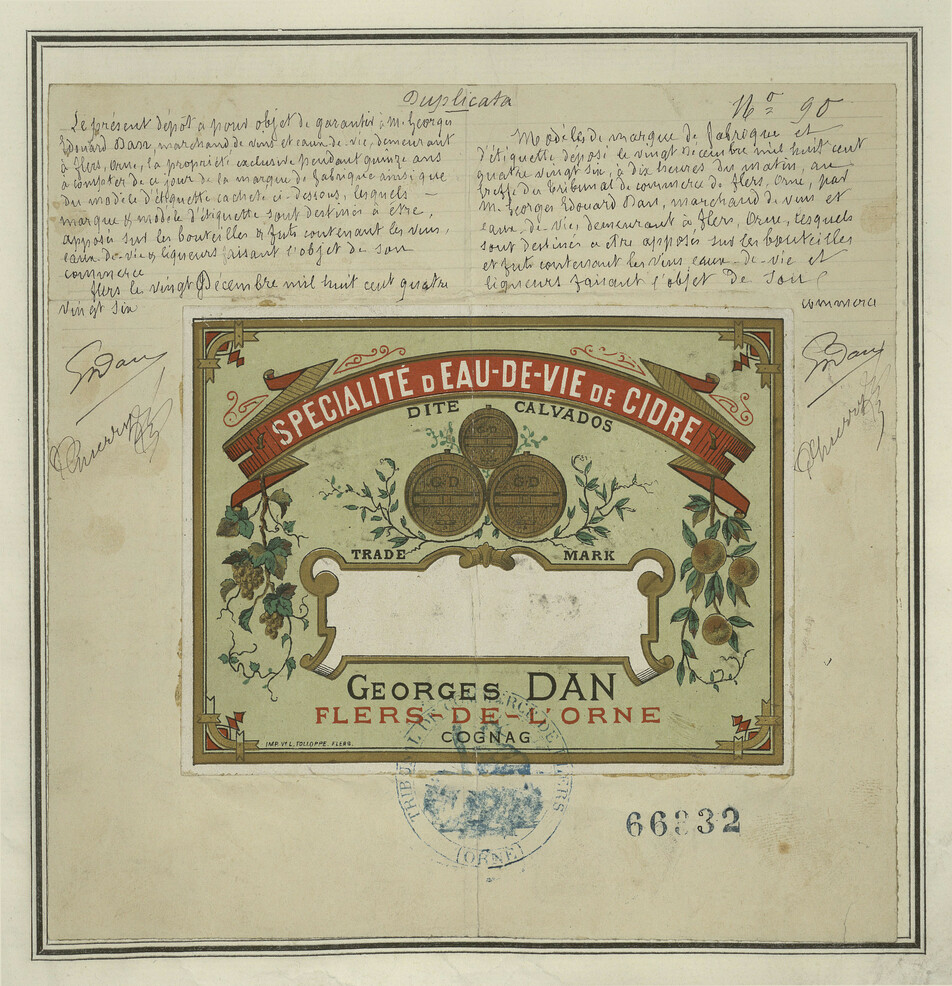 Duplicata
No 90
Le présent dépôt a pour objet de garantir à M. Georges
Edouard Dan, marchand de vins et eaux-de-vie, demeurant
à flers, Orne, la propriété exclusive pendant quinze ans
à compter de ce jour de la marque de fabrique ainsi que
du modèle d'étiquette cachetés ci-dessous, lesquels
marque & modèle d'étiquette sont destinés à être,
apposés sur les bouteilles & futs contenant les vins,
eaux-de-vie & liqueurs faisant l'objet de son
commerce
flers le vingt Décembre mil huit cent quatre
vingt six
Modèles de marque de fabrique et
d'étiquette déposé le vingt Décembre mil huit cent
quatre vingt six, à dix heures du matin, au
greffe du tribunal de commerce de flers, Orne, par
M. Georges Edouard Dan, marchand de vins et
eaux-de-vie, demeurant à flers, Orne, lesquels
sont destinés à être apposés sur les bouteilles
et futs contenant les vins eaux-de-vie et
liqueurs faisant l'objet de son
commerce
GDan
GDan
SPÉCIALITÉ D'EAU-DE-VIE DE CIDRE
DITE CALVADOS
G·D
G·D
G·D
TRADE MARK
GEORGES DAN
FLERS-DE-L'ORNE
COGNAG
IMP. Vᵉ L. FOLLOPPE. FLERS.
TRIBUNAL DE COMMERCE DE FLERS
(ORNE)
66332